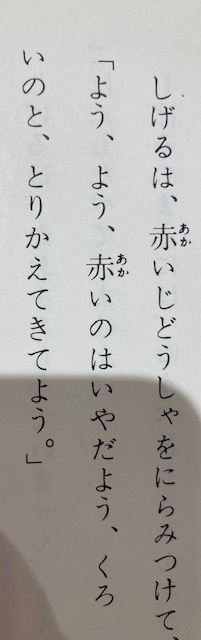 しげるは、赤いじどうしゃをにらみつけて、
「よう、よう、赤いのはいやだよう、くろ
いのと、とりかえてきてよう。」